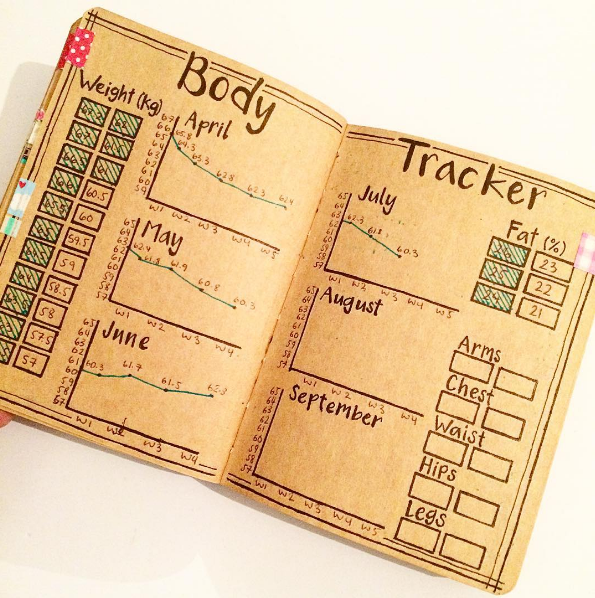 Body
Weight (kg)
60.5
60
59.5
59
58.5
58
57.5
57
April
65.8
64.3
63.3
62.8
62.3
62.4
W1 W2 W3 W4 W5
May
65
64
63
62
61
60
59
58
57
62.4
61.8
61.9
60.8
60.3
W1 W2 W3 W4
June
65
64
63
62
61
60
59
58
57
60.3
61.7
61.5
W1 W2 W3 W4
Tracker
July
65
64
63
62
61
60
59
58
57
62.3
61.8
60.3
W1 W2 W3 W4 W5
August
65
64
63
62
61
60
59
58
57
W1 W2 W3 W4
September
65
64
63
62
61
60
59
58
57
W1 W2 W3 W4 W5
Fat (%)
23
22
21
Arms
Chest
Waist
Hips
Legs